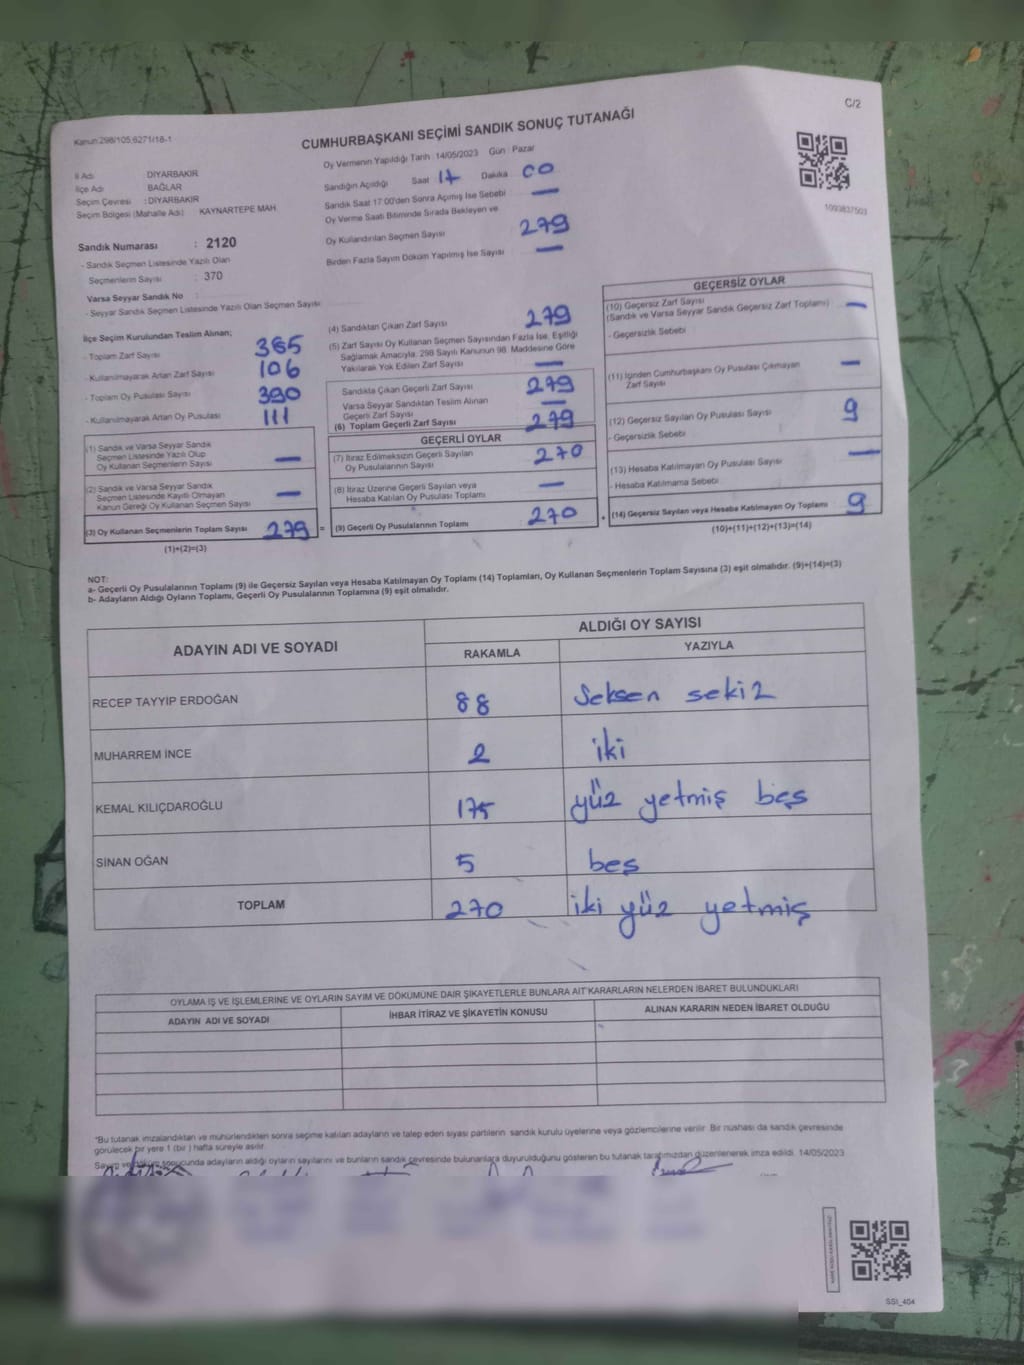 C/2
Kanun:298/105;6271/18-1
CUMHURBAŞKANI SEÇİMİ SANDIK SONUÇ TUTANAĞI
Oy Vermenin Yapıldığı Tarih : 14/05/2023 Gün : Pazar
İl Adı DİYARBAKIR
İlçe Adı BAĞLAR
Seçim Çevresi : DİYARBAKIR
Seçim Bölgesi (Mahalle Adı) KAYNARTEPE MAH.
Sandığın Açıldığı Saat 17 Dakika 00
Sandık Saat 17:00'den Sonra Açılmış İse Sebebi —
Oy Verme Saati Bitiminde Sırada Bekleyen ve
Oy Kullandırılan Seçmen Sayısı 279
Birden Fazla Sayım Döküm Yapılmış İse Sayısı —
1093837503
Sandık Numarası : 2120
- Sandık Seçmen Listesinde Yazılı Olan
Seçmenlerin Sayısı : 370
Varsa Seyyar Sandık No :
- Seyyar Sandık Seçmen Listesinde Yazılı Olan Seçmen Sayısı:
İlçe Seçim Kurulundan Teslim Alınan;
- Toplam Zarf Sayısı 385
- Kullanılmayarak Artan Zarf Sayısı 106
- Toplam Oy Pusulası Sayısı 390
- Kullanılmayarak Artan Oy Pusulası 111
(1) Sandık ve Varsa Seyyar Sandık
Seçmen Listesinde Yazılı Olup
Oy Kullanan Seçmenlerin Sayısı —
(2) Sandık ve Varsa Seyyar Sandık
Seçmen Listesinde Kayıtlı Olmayan
Kanun Gereği Oy Kullanan Seçmen Sayısı —
(3) Oy Kullanan Seçmenlerin Toplam Sayısı 279 =
(1)+(2)=(3)
(4) Sandıktan Çıkan Zarf Sayısı 279
(5) Zarf Sayısı Oy Kullanan Seçmen Sayısından Fazla İse, Eşitliği
Sağlamak Amacıyla, 298 Sayılı Kanunun 98. Maddesine Göre
Yakılarak Yok Edilen Zarf Sayısı —
Sandıkta Çıkan Geçerli Zarf Sayısı 279
Varsa Seyyar Sandıktan Teslim Alınan
Geçerli Zarf Sayısı —
(6) Toplam Geçerli Zarf Sayısı 279
GEÇERLİ OYLAR
(7) İtiraz Edilmeksizin Geçerli Sayılan
Oy Pusulalarının Sayısı 270
(8) İtiraz Üzerine Geçerli Sayılan veya
Hesaba Katılan Oy Pusulası Toplamı —
(9) Geçerli Oy Pusulalarının Toplamı 270 +
GEÇERSİZ OYLAR
(10) Geçersiz Zarf Sayısı
(Sandık ve Varsa Seyyar Sandık Geçersiz Zarf Toplamı) —
- Geçersizlik Sebebi
(11) İçinden Cumhurbaşkanı Oy Pusulası Çıkmayan
Zarf Sayısı —
(12) Geçersiz Sayılan Oy Pusulası Sayısı 9
- Geçersizlik Sebebi
(13) Hesaba Katılmayan Oy Pusulası Sayısı —
- Hesaba Katılmama Sebebi
(14) Geçersiz Sayılan veya Hesaba Katılmayan Oy Toplamı 9
(10)+(11)+(12)+(13)=(14)
NOT:
a- Geçerli Oy Pusulalarının Toplamı (9) ile Geçersiz Sayılan veya Hesaba Katılmayan Oy Toplamı (14) Toplamları, Oy Kullanan Seçmenlerin Toplam Sayısına (3) eşit olmalıdır. (9)+(14)=(3)
b- Adayların Aldığı Oyların Toplamı, Geçerli Oy Pusulalarının Toplamına (9) eşit olmalıdır.
ADAYIN ADI VE SOYADI ALDIĞI OY SAYISI
RAKAMLA YAZIYLA
RECEP TAYYİP ERDOĞAN 88 Seksen sekiz
MUHARREM İNCE 2 iki
KEMAL KILIÇDAROĞLU 175 yüz yetmiş beş
SİNAN OĞAN 5 beş
TOPLAM 270 iki yüz yetmiş
OYLAMA İŞ VE İŞLEMLERİNE VE OYLARIN SAYIM VE DÖKÜMÜNE DAİR ŞİKAYETLERLE BUNLARA AİT KARARLARIN NELERDEN İBARET BULUNDUKLARI
ADAYIN ADI VE SOYADI İHBAR İTİRAZ VE ŞİKAYETİN KONUSU ALINAN KARARIN NEDEN İBARET OLDUĞU
*Bu tutanak imzalandıktan ve mühürlendikten sonra seçime katılan adayların ve talep eden siyasi partilerin sandık kurulu üyelerine veya gözlemcilerine verilir. Bir nüshası da sandık çevresinde
görülecek bir yere 1 (bir ) hafta süreyle asılır.
Sayım ve sonucunda adayların aldığı oyların sayılarını ve bunların sandık çevresinde bulunanlara duyurulduğunu gösteren bu tutanak tarafımızdan düzenlenerek imza edildi. 14/05/2023
SSI_404